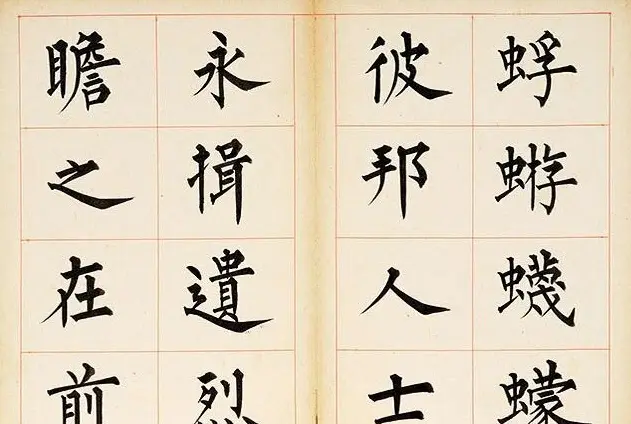 蜉蝣蠛蠓
彼邦人士
永揖遺烈
瞻之在前